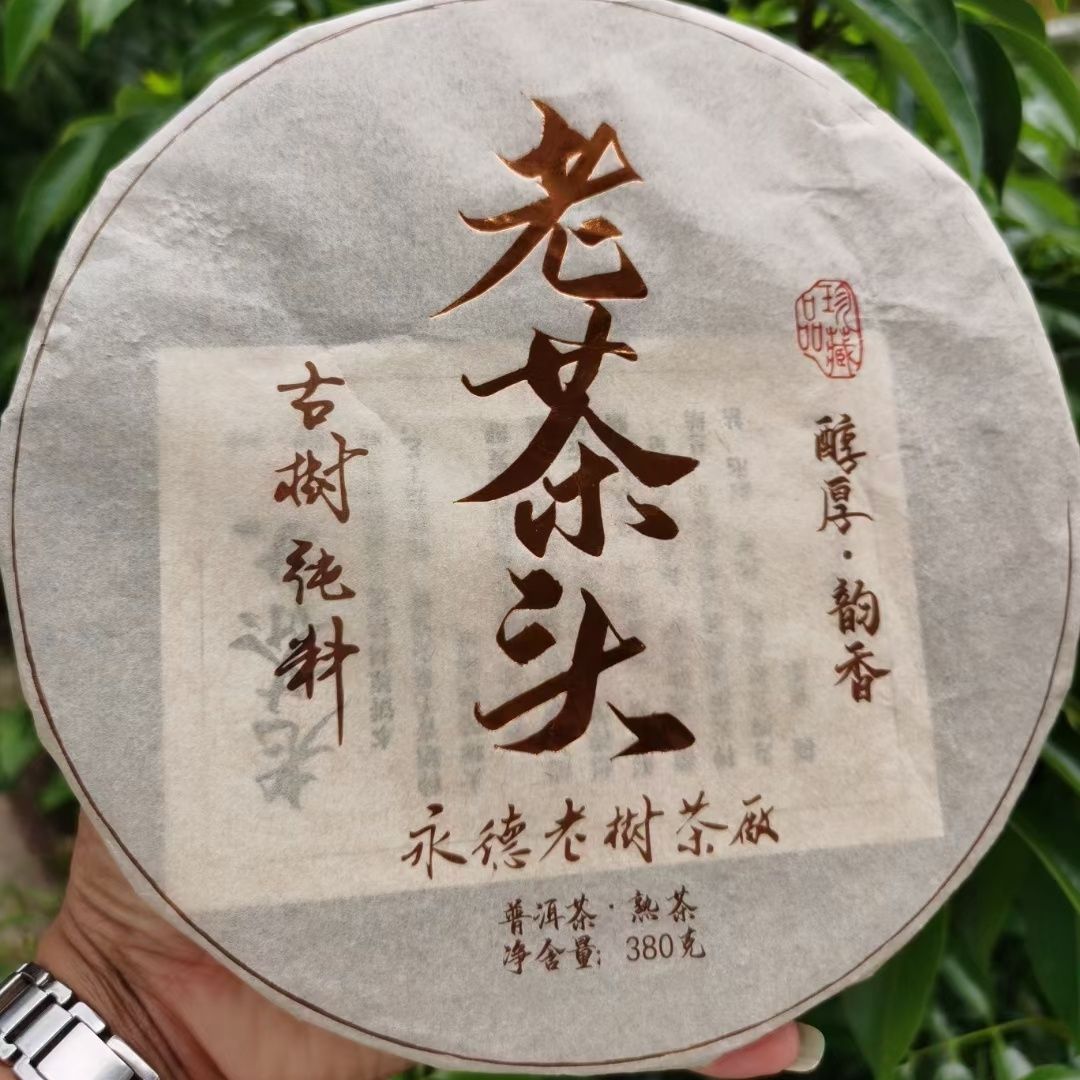 老茶头
珍藏
品
醇厚·韵香
古樹纯料
永德老樹茶厰
普洱茶·熟茶
净含量: 380克